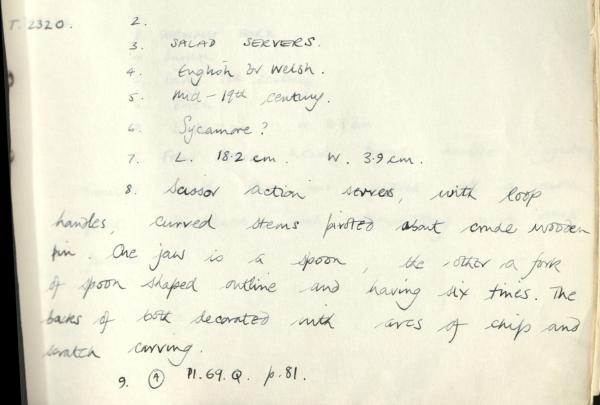 T. 2320.
2.
3. SALAD SERVERS.
4. English or Welsh.
5. Mid-19th century.
6. Sycamore?
7. L. 18.2 cm. W. 3.9 cm.
8. Scissor action servers, with loop
handles, curved stems pivoted about crude wooden
pin. One jaw is a spoon, the other a fork
of spoon shaped outline and having six tines. The
backs of both decorated with arcs of chip and
scratch carving.
9. A Pl. 69. Q. p. 81.